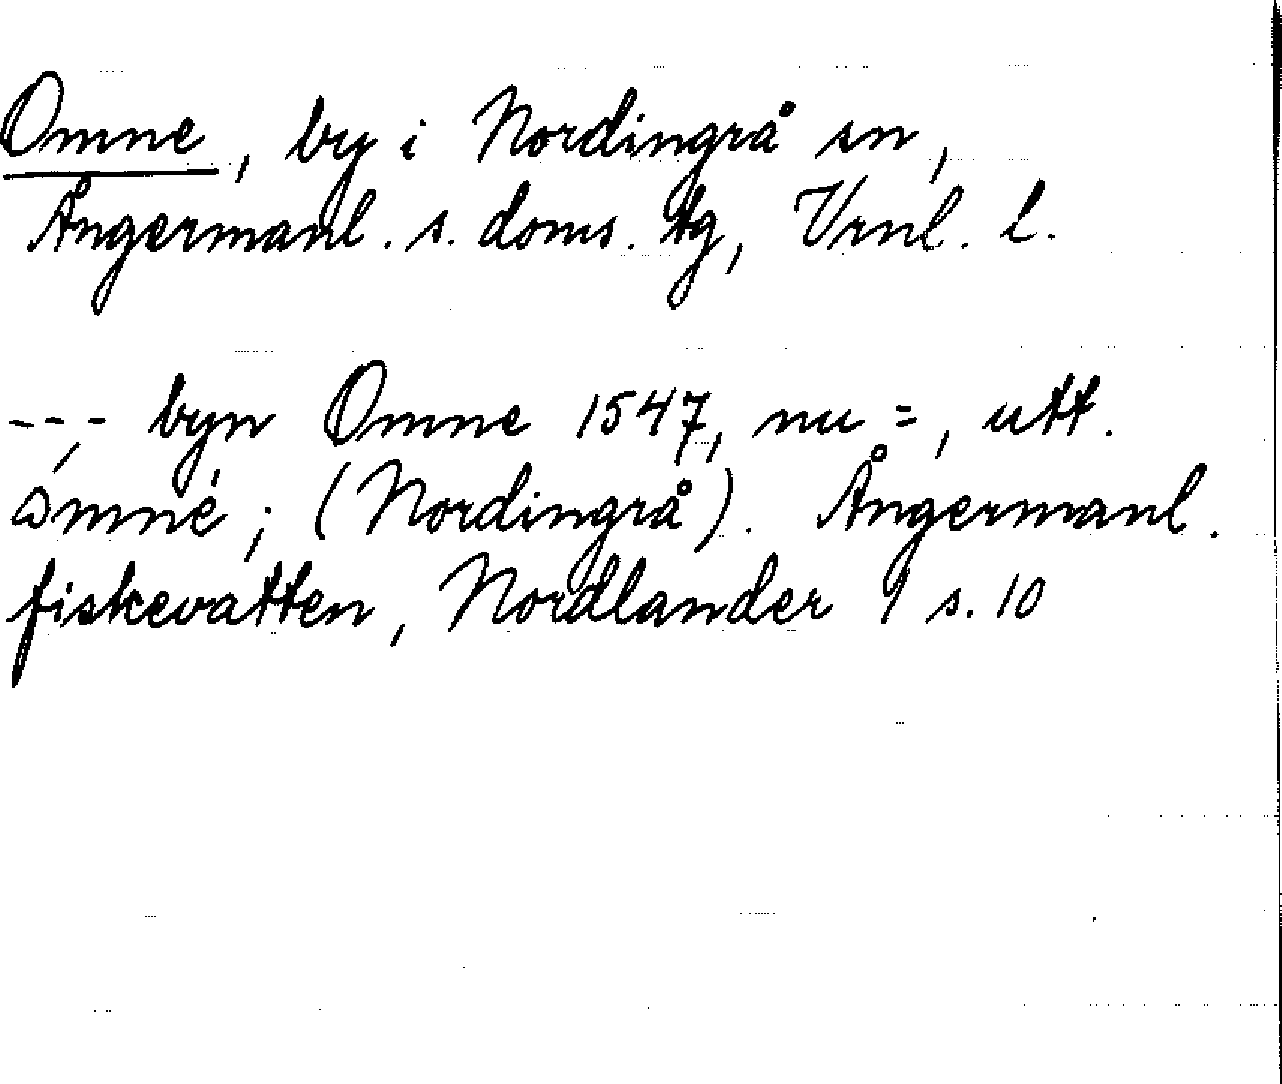 Omne, by i Nordingrå sn,
Ångermanl. s. doms. tg, Vrnl. l.
--,- byn Omne 1547, nu =, utt.
ómnè; (Nordingrå). Ångermanl.
fiskevatten, Nordlander 9 s. 10